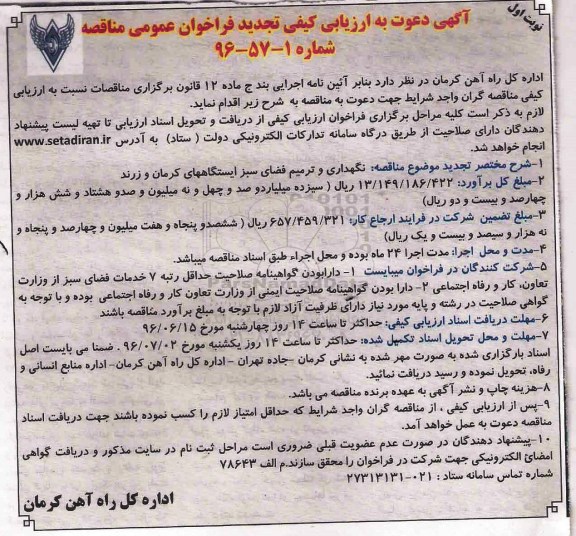 نوبت اول
آگهی دعوت به ارزیابی کیفی تجدید فراخوان عمومی مناقصه
شماره ۱-۵۷-۹۶
اداره کل راه آهن کرمان در نظر دارد بنابر آئین نامه اجرایی بند ج ماده ۱۲ قانون برگزاری مناقصات نسبت به ارزیابی
کیفی مناقصه گران واجد شرایط جهت دعوت به مناقصه به شرح زیر اقدام نماید.
لازم به ذکر است کلیه مراحل برگزاری فراخوان ارزیابی کیفی از دریافت و تحویل اسناد ارزیابی تا تهیه لیست پیشنهاد
دهندگان دارای صلاحیت از طریق درگاه سامانه تدارکات الکترونیکی دولت ( ستاد) به آدرس www.setadiran.ir
انجام خواهد شد.
۱-شرح مختصر تجدید موضوع مناقصه: نگهداری و ترمیم فضای سبز ایستگاههای کرمان و زرند
۲-مبلغ کل برآورد: ۱۳/۱۴۹/۱۸۶/۴۲۲ ریال ( سیزده میلیاردو صد و چهل و نه میلیون و صدو هشتاد و شش هزار و
چهارصد و بیست و دو ریال)
۳-مبلغ تضمین شرکت در فرایند ارجاع کار: ۶۵۷/۴۵۹/۳۲۱ ریال ( ششصدو پنجاه و هفت میلیون و چهارصد و پنجاه و
نه هزار و سیصد و بیست و یک ریال)
۴-مدت و محل اجرا: مدت اجرا ۲۴ ماه بوده و محل اجراء طبق اسناد مناقصه میباشد.
۵-شرکت کنندگان در فراخوان میبایست ۱-دارابودن گواهینامه صلاحیت حداقل رتبه ۷ خدمات فضای سبز از وزارت
تعاون، کار و رفاه اجتماعی ۲-دارا بودن گواهینامه صلاحیت ایمنی از وزارت تعاون کار و رفاه اجتماعی بوده و با توجه به
گواهی صلاحیت در رشته و پایه مورد نیاز دارای ظرفیت آزاد لازم با توجه به مبلغ برآورد مناقصه باشند
۶-مهلت دریافت اسناد ارزیابی کیفی: حداکثر تا ساعت ۱۴ روز چهارشنبه مورخ ۹۶/۰۶/۱۵
۷-مهلت و محل تحویل اسناد تکمیل شده: حداکثر تا ساعت ۱۴ روز یکشنبه مورخ ۹۶/۰۷/۰۲ . ضمنا می بایست اصل
اسناد بارگزاری شده به صورت مهر شده به نشانی کرمان -جاده تهران -اداره کل راه آهن کرمان- اداره منابع انسانی و
رفاه، تحویل نموده و رسید دریافت نمائید.
۸-هزینه چاپ و نشر آگهی به عهده برنده مناقصه می باشد.
۹-پس از ارزیابی کیفی ، از مناقصه گران واجد شرایط که حداقل امتیاز لازم را کسب نموده باشند جهت دریافت اسناد
مناقصه دعوت به عمل خواهد آمد.
۱۰-پیشنهاد دهندگان در صورت عدم عضویت قبلی ضروری است مراحل ثبت نام در سایت مذکور و دریافت گواهی
امضائ الکترونیکی جهت شرکت در فراخوان را محقق سازند.م الف ۷۸۶۴۳
شماره تماس سامانه ستاد : ۰۲۱-۲۷۳۱۳۱۳۱
اداره کل راه آهن کرمان